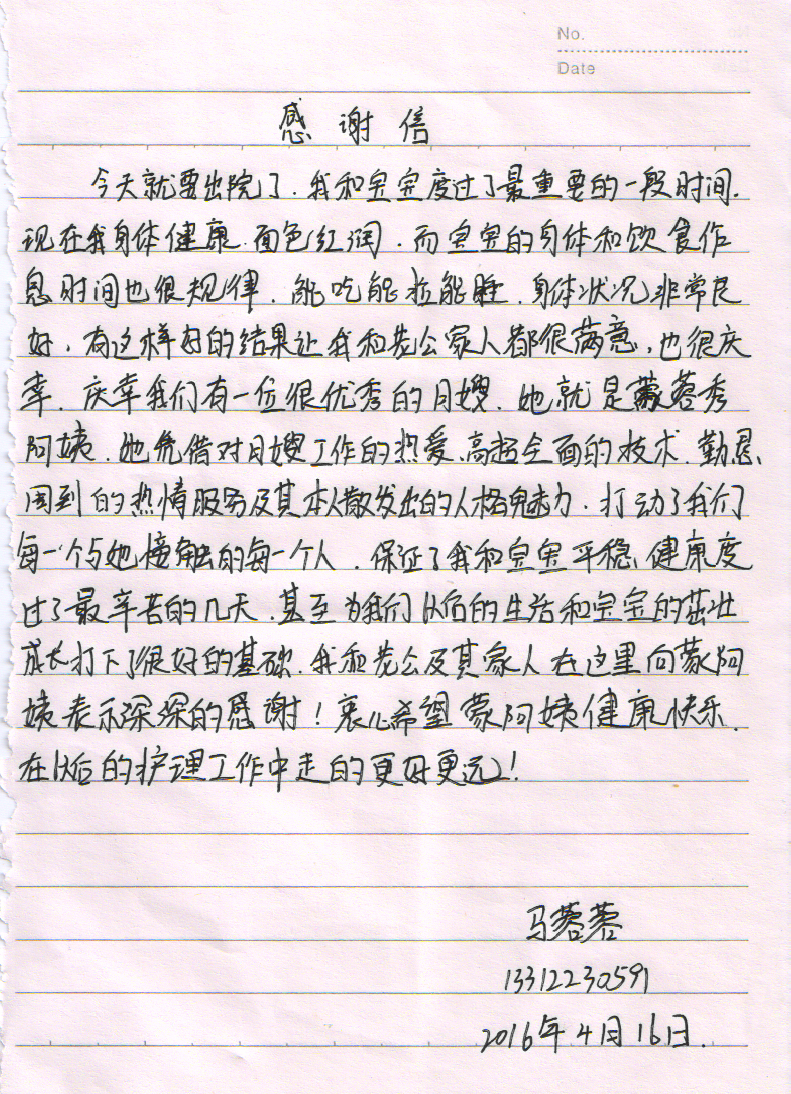 No.
Date
感谢信
今天就要出院了.我和宝宝度过了最重要的一段时间.
现在我身体健康.面色红润.而宝宝的身体和饮食作
息时间也很规律.能吃能拉能睡.身体状况非常良
好.有这样好的结果让我和老公家人都很满意,也很庆
幸.庆幸我们有一位很优秀的月嫂.她就是蒙蓉秀
阿姨.她凭借对月嫂工作的热爱、高超全面的技术.勤恳、
周到的热情服务及其本人散发出的人格魅力.打动了我们
每一个与她接触的每一个人.保证了我和宝宝平稳、健康度
过了最辛苦的几天.甚至为我们以后的生活和宝宝的茁壮
成长打下了很好的基础.我和老公及其家人在这里向蒙阿
姨表示深深的感谢!衷心希望蒙阿姨健康快乐.
在以后的护理工作中走的更好更远!
马蓉蓉
13312230591
2016年4月16日.